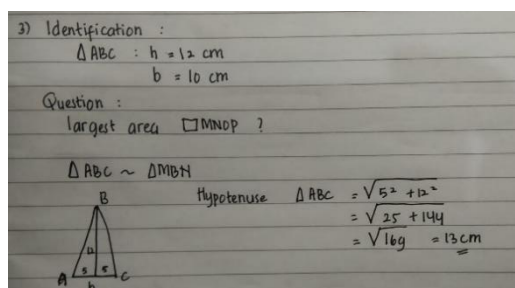 3) Identification :
△ABC : h = 12 cm
b = 10 cm
Question :
largest area □MNOP ?
△ABC ~ △MBN
Hypotenuse △ABC = √5² + 12²
= √25 + 144
= √169 = 13 cm
B
12
A 5 5 C
b